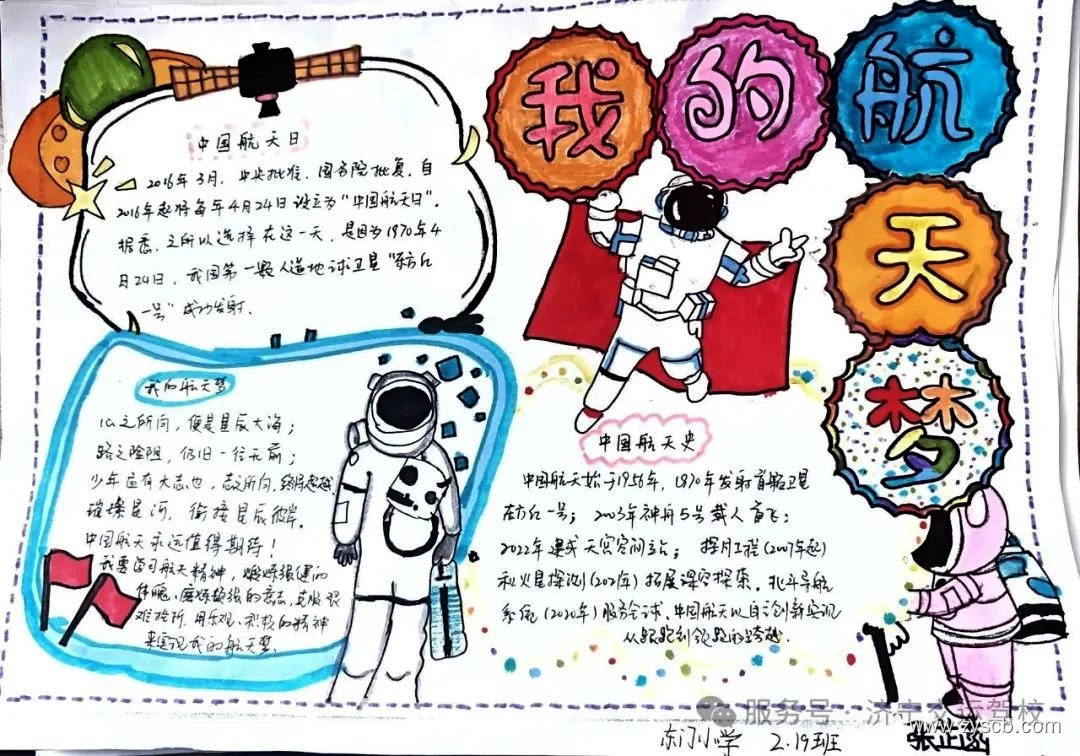 我的航天梦
中国航天日
2016年3月,中央批准,国务院批复,自
2016年起将每年4月24日设立为“中国航天日”。
据悉,之所以选择在这一天,是因为1970年4
月24日,我国第一颗人造地球卫星“东方红
一号”成功发射.
我的航天梦
心之所向,便是星辰大海;
路之险阻,仍旧一往无前;
少年应有大志也,志之所向,终将超越
璀璨星河,衔接星辰彼岸。
中国航天永远值得期待!
我要学习航天精神,锻炼强健的
体魄,磨练顽强的意志,克服艰
难挫折.用乐观、积极的精神
来实现我的航天梦.
中国航天史
中国航天始于1956年,1970年发射首颗卫星
东方红一号;2003年神舟5号载人首飞;
2022年建成天宫空间站;探月工程(2007年起)
和火星探测(2021年)拓展深空探索.北斗导航
系统(2020年)服务全球.中国航天以自主创新实现
从跟跑到领跑的跨越.
服务号·济宁交运驾校
www.zyscb.com
东门小学 2.19班